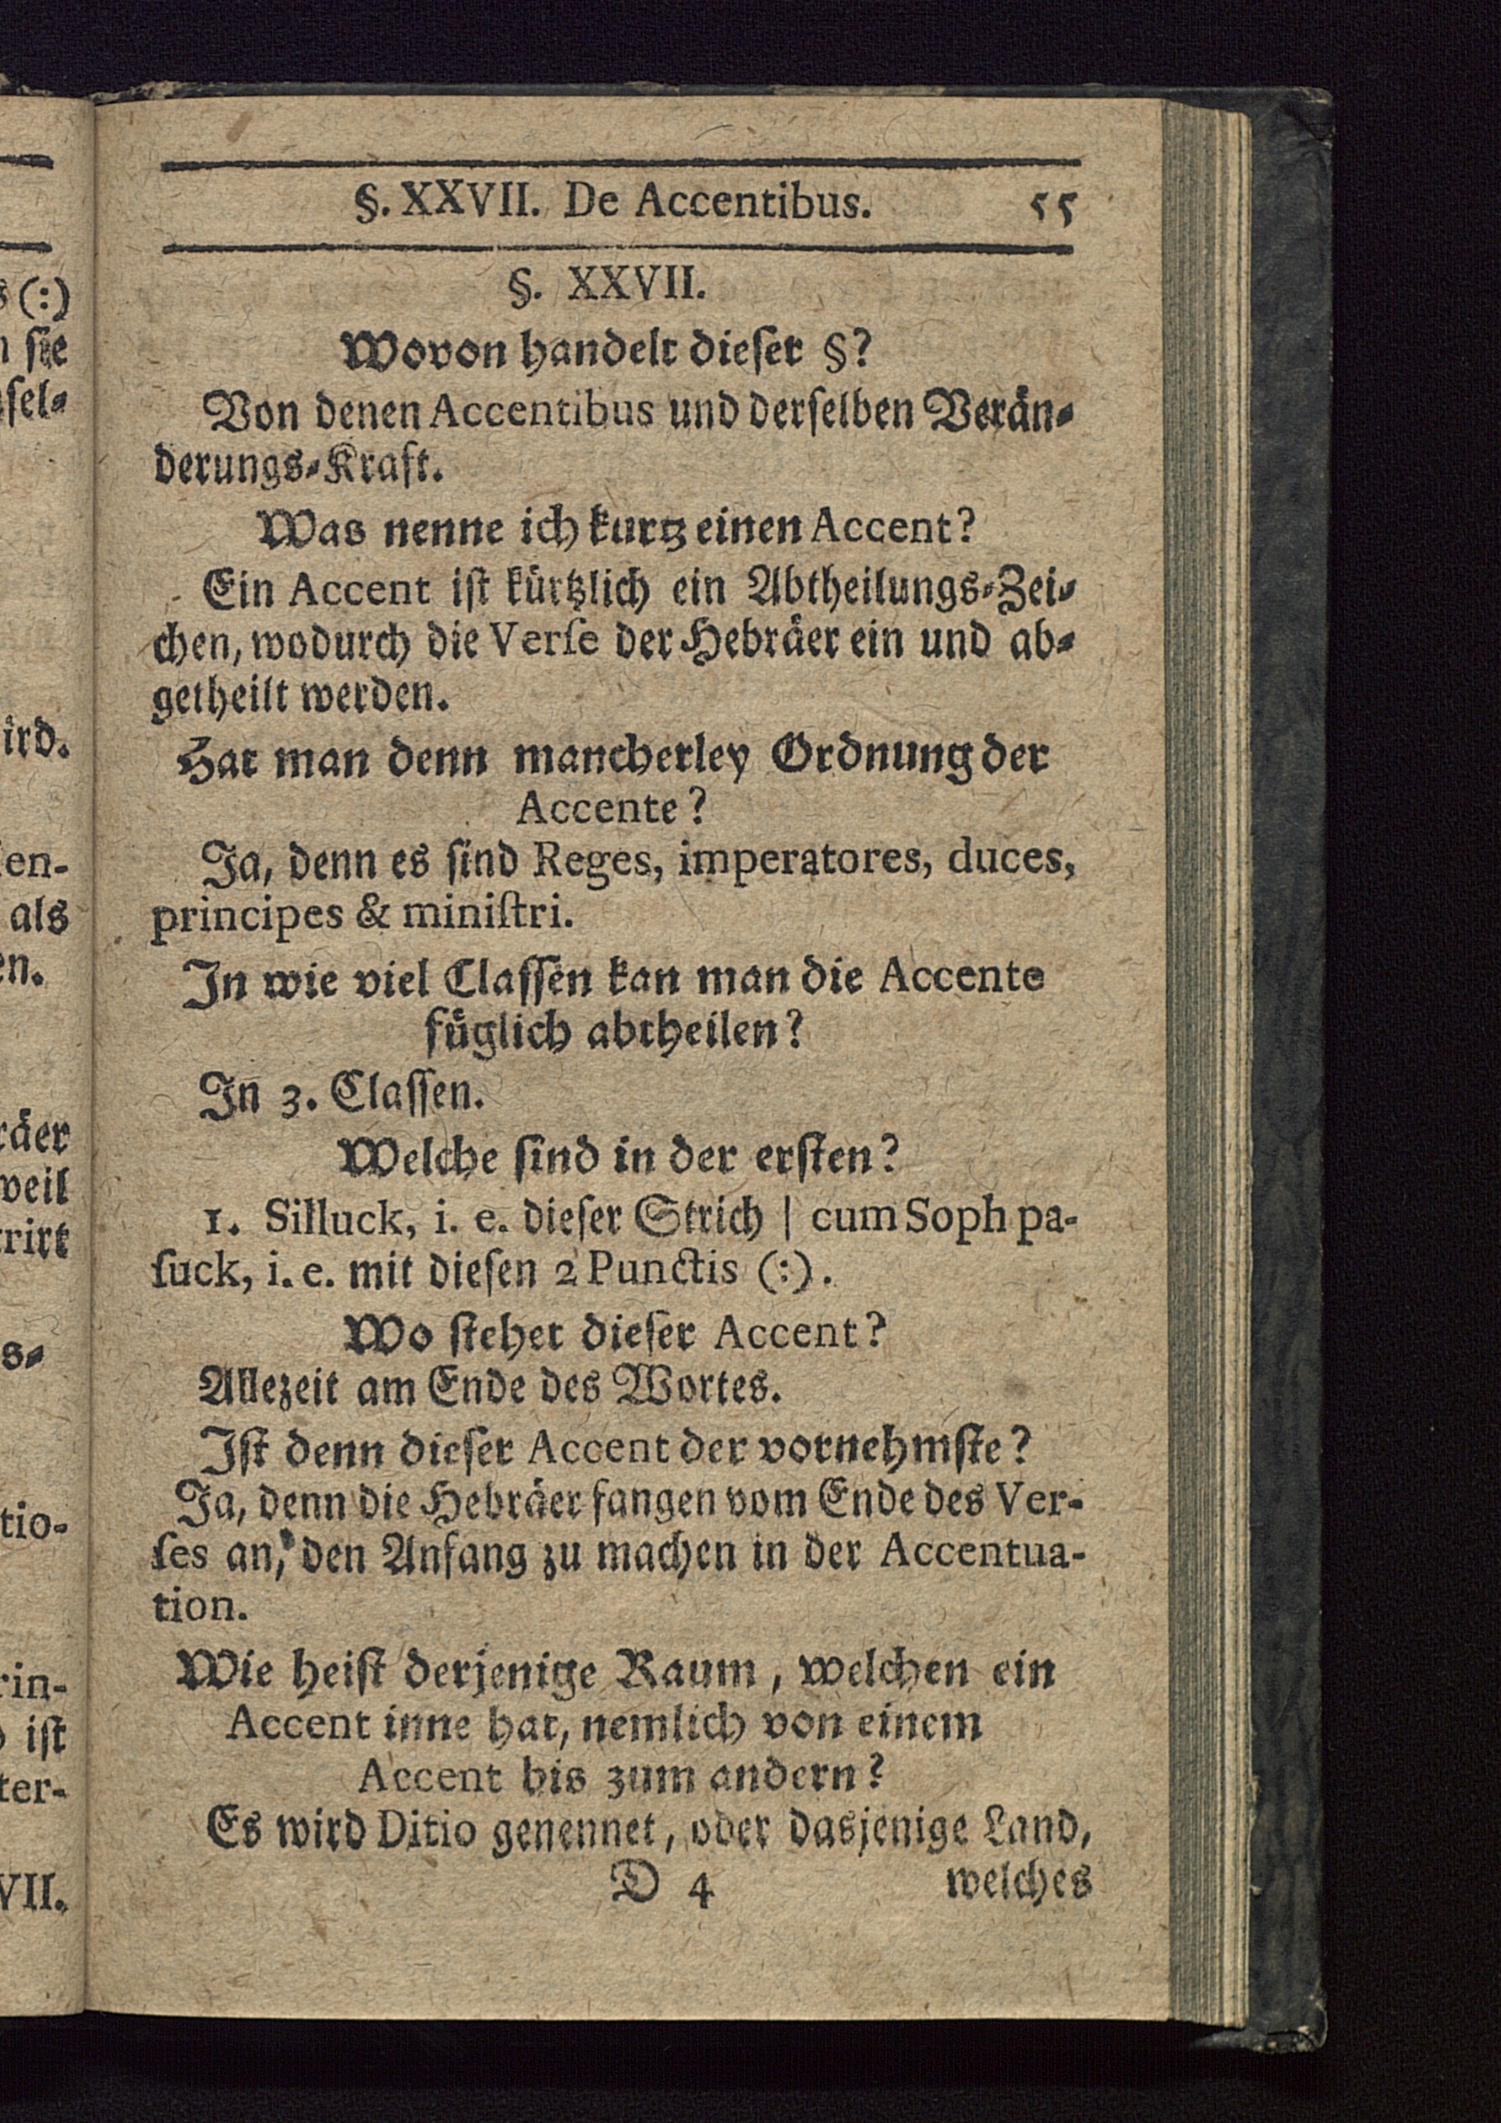 §. XXVII. De Accentibus. 55
§. XXVII.
Wovon handelt dieſer §?
Von denen Accentibus und derſelben Verän⸗
derungs⸗Kraft.
Was nenne ich kurtz einen Accent?
Ein Accent iſt kürtzlich ein Abtheilungs⸗Zei⸗
chen, wodurch die Verſe der Hebräer ein und ab⸗
getheilt werden.
Hat man denn mancherley Ordnung der
Accente?
Ja, denn es ſind Reges, imperatores, duces,
principes & miniſtri.
In wie viel Claſſen kan man die Accente
füglich abtheilen?
In 3. Claſſen.
Welche ſind in der erſten?
1. Silluck, i. e. dieſer Strich | cum Soph pa-
ſuck, i. e. mit dieſen 2 Punctis (:).
Wo ſtehet dieſer Accent?
Allezeit am Ende des Wortes.
Iſt denn dieſer Accent der vornehmſte?
Ja, denn die Hebräer fangen vom Ende des Ver-
ſes an, den Anfang zu machen in der Accentua-
tion.
Wie heiſt derjenige Raum, welchen ein
Accent inne hat, nemlich von einem
Accent bis zum andern?
Es wird Ditio genennet, oder dasjenige Land,
D 4 welches